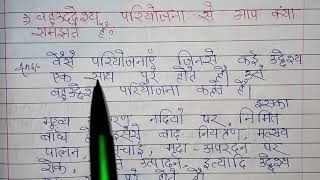 3) बहुउद्देश्य परियोजना से आप क्या
समझते हैं?
Ans- वैसे परियोजनाएँ जिनसे कई उद्देश्य
एक साथ पूरे होते हैं। उसे
बहुउद्देश्य परियोजना कहते हैं।
इसका
मुख्य नदियों पर निर्मित
बाँध है इससे बाढ़ नियंत्रण, मत्स्य
पालन, मृदा-अपरदन पर
रोक, उत्पादन, इत्यादि उद्देश्य
होते हैं।